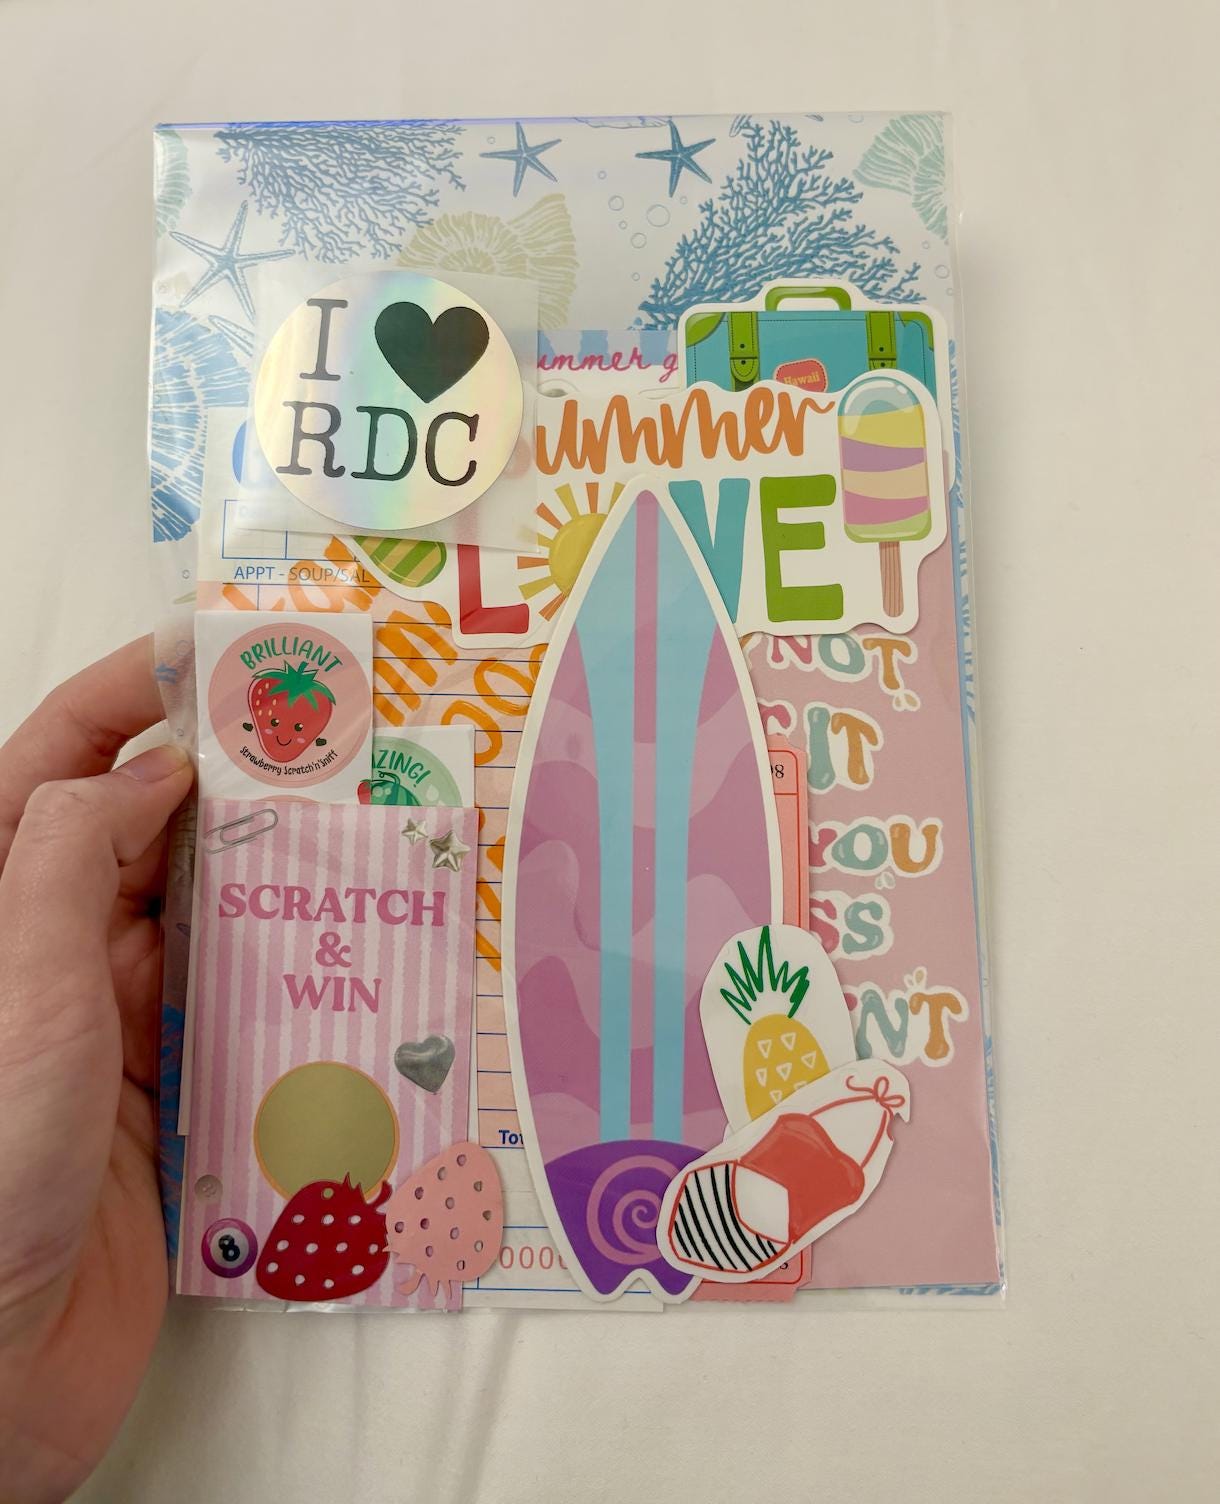 I
RDC
ummer g
Hawaii
summer
LOVE
APPT - SOUP/SAL
BRILLIANT
Strawberry Scratch'n'Sniff
AZING!
NOT
IT
YOU
SS
NT
SCRATCH
&
WIN
8
Tot
0000